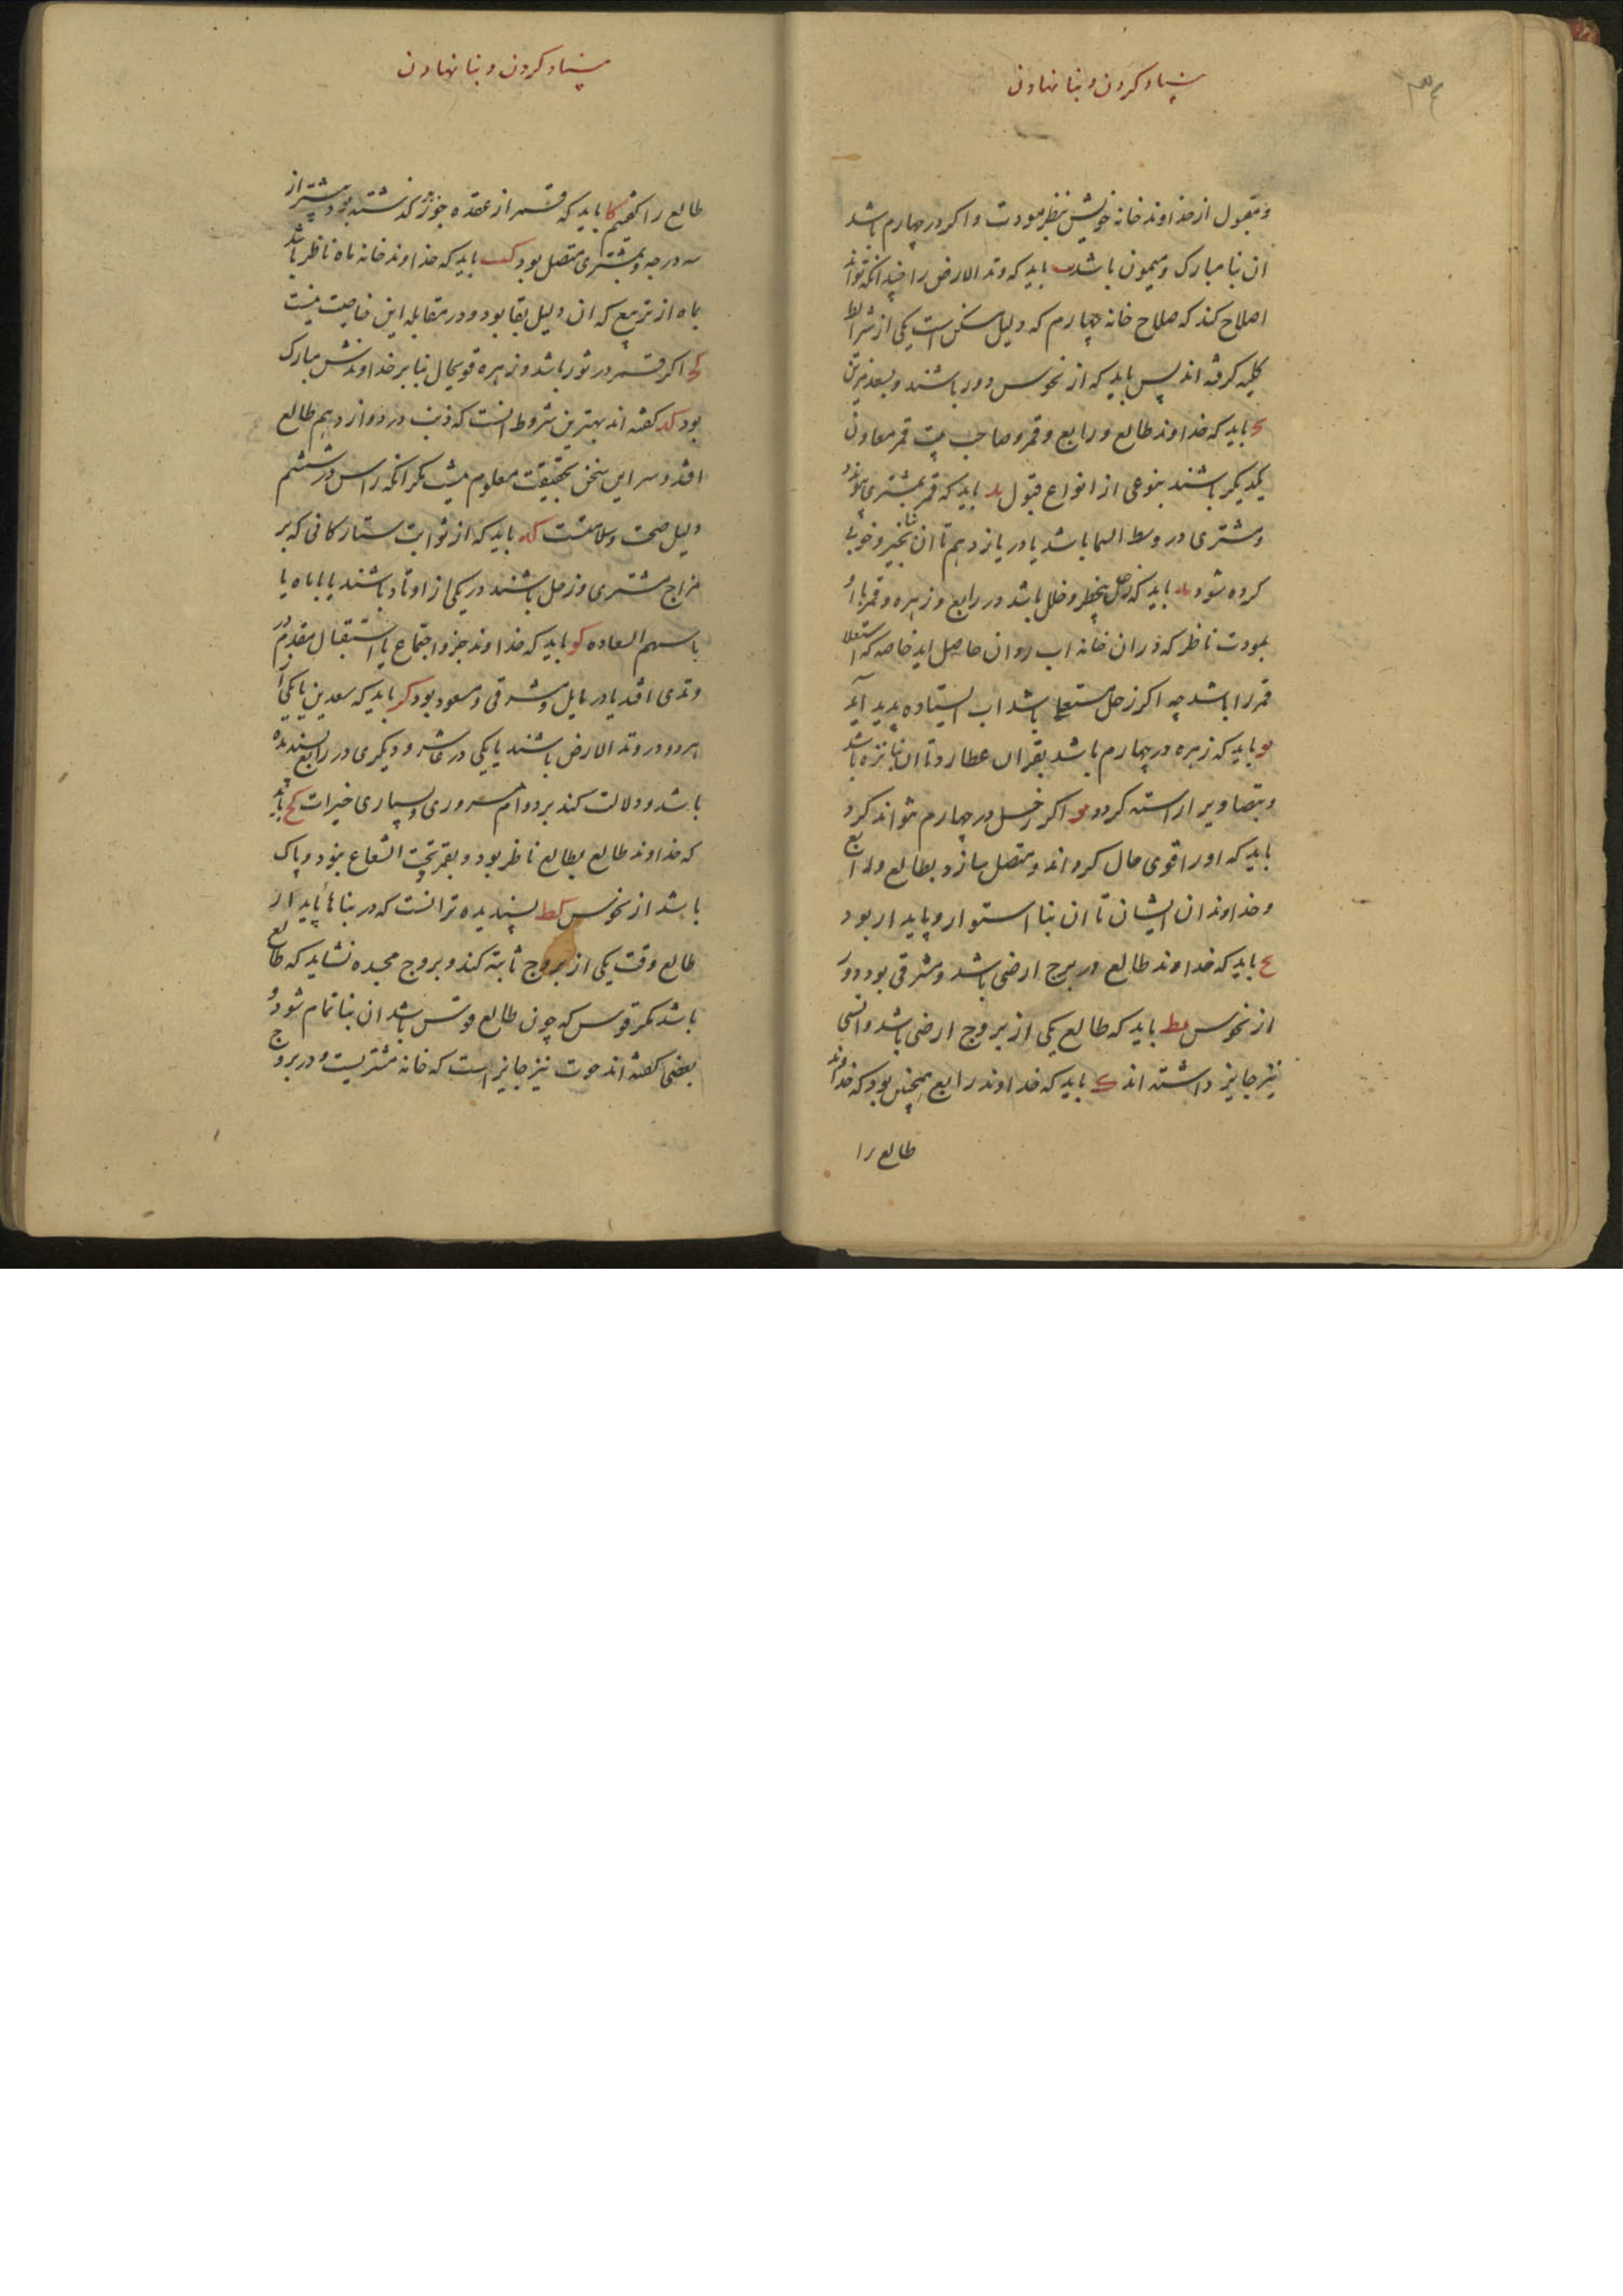 بنیاد کردن و بنا نهادن
۳۴
و مقبول از خداوند خانه خویش بنظر مودت و اکر در چهارم باشد
ان بنا مبارک و میمون باشد یب باید که وتد الارض را چندانکه تواند
اصلاح کند که صلاح خانه چهارم که دلیل مسکن است یکی از شرائط
کلیه کرفته اند پس باید که از نحوس دور باشند و بسعد مزین
یج باید که خداوند طالع و رابع و قمر و صاحب بیت قمر معاون
یکدیکر باشند بنوعی از انواع قبول ید باید که قمر بمشتری پیوندد
و مشتری در وسط السما باشد یا در یازدهم تا ان بنا بخیر و خوبی
کرده شود یه باید که زحل بیخطر و خلل باشد در رابع و زهره و قمر باو
بمودت ناظر که دران خانه اب روان حاصل اید خاصه که استعلا
قمر را باشد چه اکر زحل مستعلی باشد اب ایستاده پدید آید
یو باید که زهره در چهارم باشد بقران عطارد تا ان بنا نزه باشد
و بتصاویر اراسته کردد یز اکر زحل در چهارم تواند کرد
باید که او را قوی حال کرداند و متصل سازد بطالع و رابع
و خداوندان ایشان تا ان بنا استوار و پایدار بود
یح باید که خداوند طالع در برج ارضی باشد و مشرقی بود و دور
از نحوس یط باید که طالع یکی از بروج ارضی باشد و انسی
نیز جایز داشته اند ک باید که خداوند رابع همچنین بود که خداوند
طالع را
بنیاد کردن و بنا نهادن
طالع را کفتیم کا باید که قمر از عقده جوزهر کذشته بود پیشتر از
سه درجه و بمشتری متصل بود کب باید که خداوند خانه ماه ناظر باشد
بماه از تربیع که ان دلیل بقا بود و در مقابله این خاصیت نیست
کج اکر قمر در ثور باشد و زهره قویحال بنا بر خداوندش مبارک
بود کد کفته اند بهترین شروط انست که ذنب در دوازدهم طالع
افتد و سر این سخن بحقیقت معلوم نیست مکر انکه راس در ششم
دلیل صحت و سلامتست که باید که از ثوابت ستارکانی که بر
مزاج مشتری و زحل باشند در یکی از اوتاد باشند یا با ماه یا
با سهم السعاده کو باید که خداوند جزو اجتماع یا استقبال مقدم در
وتدی افتد یا در مایل و مشرقی و مسعود بود کز باید که سعدین یا یکی از
هر دو در وتد الارض باشند یا یکی در عاشر و دیکری در رابع پسندیده
باشد و دلالت کند بر دوام سروری و بسیاری خیرات کح باید
که خداوند طالع بطالع ناظر بود و بقمر و تحت الشعاع نبود و پاک
باشد از نحوس کط پسندیده تر انست که در بناهاء پایدار
طالع وقت یکی از بروج ثابته کند و بروج مجسده نشاید که طالع
باشد مکر قوس که چون طالع قوس باشد ان بنا تمام شود و
بعضی کفته اند حوت نیز جایز است که خانه مشتریست و در بروج